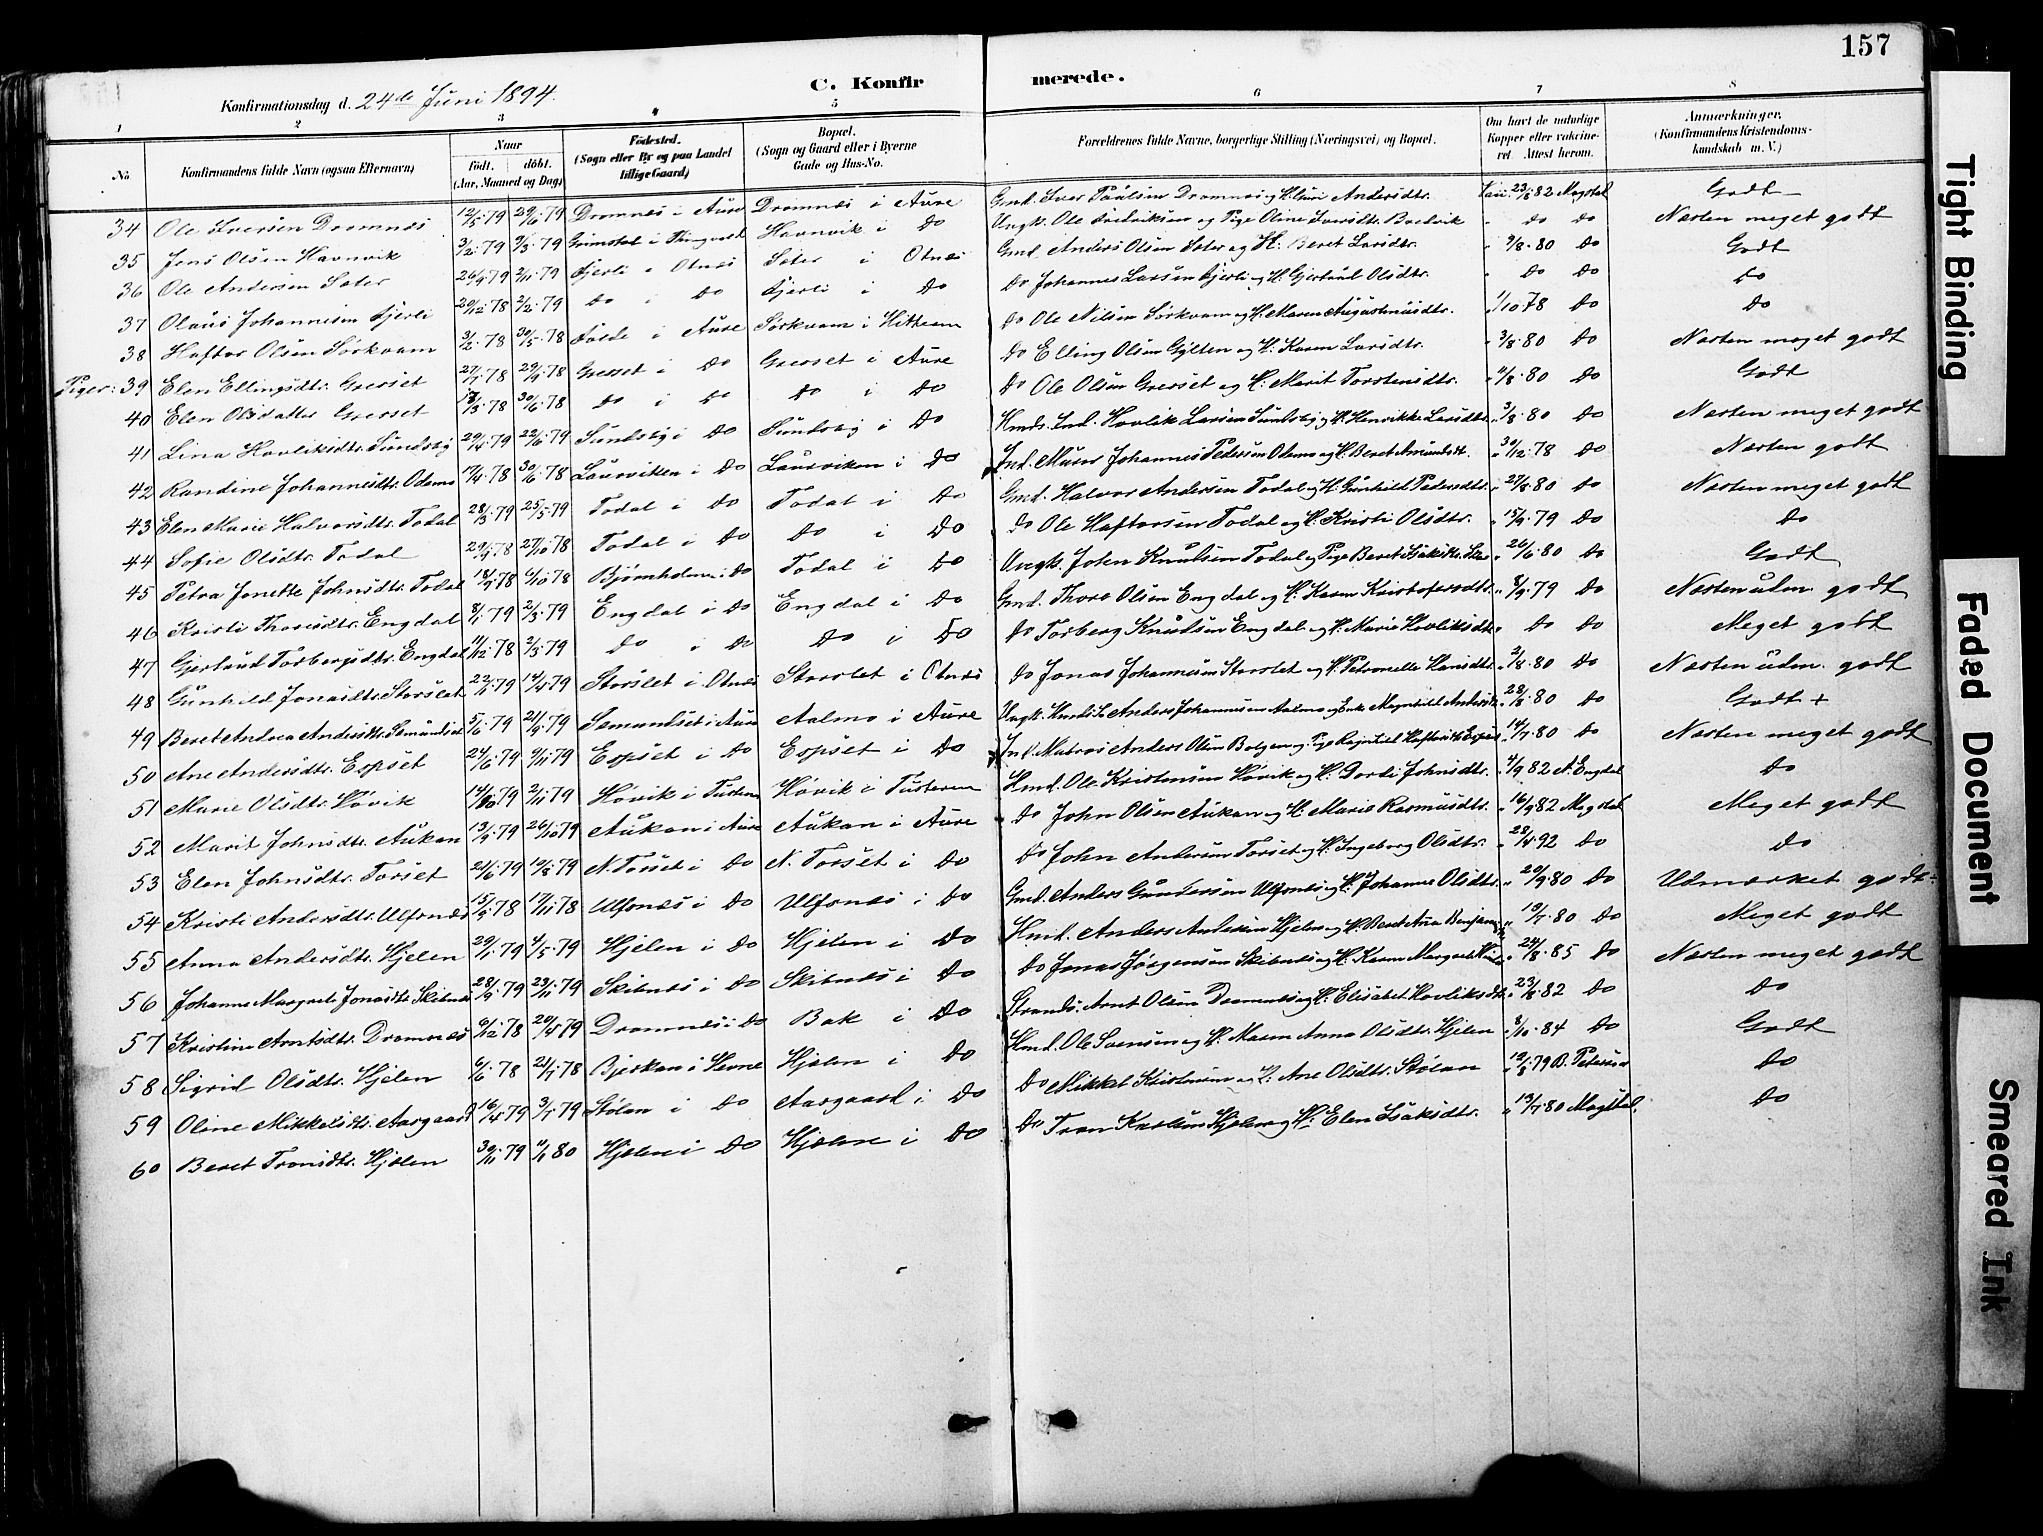 157
Konfirmationsdag d. 24de Juni 1894.
C. Konfirmerede.
1 2 3 4 5 6 7 8
No
Konfirmandens fulde Navn (ogsaa Efternavn)
Naar født. døbt. (Aar, Maaned og Dag)
Fødested. (Sogn eller By og paa Landet tillige Gaard)
Bopæl. (Sogn og Gaard eller i Byerne Gade og Hus-No.
Forældrenes fulde Navne, borgerlige Stilling (Næringsvei) og Bopæl.
Om havt de naturlige Kopper eller vakcineret. Attest herom.
Anmærkninger. (Konfirmandens Kristendomskundskab m. V.)
34 Ole Iversen Dromnes 12/5 79 29/6 79 Dromnes i Aure Dromnes i Aure Gmd. Iver Paulsen Dromnes og H. Andersdtr. Vac. 23/8 82 Magstad Godt
35 Jens Olsen Havnvik 3/2 79 9/3 79 Grimstad i Havnvik i Do Ungk. Ole Fredriksen og Pige Oline Iversdtr. Bredvik " do do Næsten meget godt
36 Ole Andersen Sæter 26/9 79 2/11 79 Fjerli i Otnes Sæter i Otnes Gmd. Anders Olsen Sæter og H. Beret Larsdtr. " 9/8 80 Do Godt
37 Olaus Johannesen Fjerli 29/12 78 2/2 79 Do i Do Fjerli i Do Do Johannes Larsen Fjerli og H. Gjertrud Olsdtr. " Do Do Do
38 Haftor Olsen Sørkvam 3/2 78 30/5 78 i Aure Sørkvam i Do Ole Nilsen Sørkvam og H. Maren Augustinusdtr. 1/10 78 Do Do
Piger: 39 Elen Ellingsdtr. Gresset 27/7 78 29/9 78 Gresset i Do Gresset i Aure Do Elling Olsen Gylten og H. Karen Larsdtr. " 3/8 80 Do Næsten meget godt
40 Elen Olsdatter Gresset 18/3 78 30/6 78 Do i Do Do i Do Do Ole Olsen Gresset og H. Marit Torstensdtr. " 11/8 80 Do Godt
41 Lina Havliksdtr. Sundsbø 29/4 79 22/6 79 Sundsbø i Do Sundsbø i Do Hmd. Ind. Havlik Larsen Sundsbø og H. Henrikke Larsdtr. " 3/8 80 Do Næsten meget godt
42 Randine Johannesdtr. Odamo 17/4 78 30/6 78 Laurviken i Do Laurviken i Do Ind. Murer Johannes Pedersen Odamo og H. Beret Amundsdt. " 30/12 78 do Næsten godt
43 Elen Marie Halvorsdtr. Todal 28/3 79 25/5 79 Todal i Do Todal i Do Gmd. Halvor Andersen Todal og H. Gunhild Pedersdtr. " 27/8 80 do Næsten meget godt
44 Sofie Olsdtr. Todal 29/9 78 27/10 78 Todal i Do Do i Do Do Ole Haftorsen Todal og H. Kristi Olsdtr. " 15/9 79 Do Do
45 Petra Jonette Johnsdtr. Todal 18/9 78 6/10 78 Bjørnholmen i Do Todal i Do Ungk. John Knudsen Todal og Pige Beret Isaksdtr. " 26/6 80 Do Godt
46 Kristi Thoresdtr. Engdal 8/1 79 2/3 79 Engdal i Do Engdal i Do Gmd. Thore Olsen Engdal og H. Karen Kristofersdtr. " 8/9 79 Do Næsten udm. godt
47 Gjertrud Torbergsdtr. Engdal 11/12 78 2/3 79 Do " Do Do i Do Do Torberg Knudsen Engdal og H. Marie Havliksdtr. " Do Do Meget godt
48 Gunhild Jonasdtr. Storslet 22/1 79 14/4 79 Storslet i Otnes Storslet i Otnes Do Jonas Johannesen Storslet og H. Petronelle Hansdtr. 2/8 80 Do Næsten udm. godt
49 Beret Andrea Andersdtr. Semundset 5/6 79 21/9 79 Semundset i Aure Aalmo i Aure Ungk. Anders Johannesen Aalmo og Enke Magnhild Andersdtr. " 28/8 80 Do Godt +
50 Ane Andersdtr. Espset 24/6 79 9/11 79 Espset i Do Espset i Do Ind. Matros Anders Olsen Bolgen og Pige Ragnhild Haftorsdtr. Espset " 14/7 80 do Næsten meget godt
51 Marie Olsdtr. Høvik 14/10 79 2/11 79 Høvik i Tustern Høvik i Tusteren Hmd. Ole Kristensen Høvik og H. Dordi Johnsdtr. " 4/9 82 A. Engdal Do
52 Marit Johnsdtr. Aukan 13/9 79 26/10 79 Aukan i Aure Aukan i Aure Do John Olsen Aukan og H. Marie Rasmusdtr. " 16/9 82 Magstad Meget godt
53 Elen Johnsdtr. Torset 21/6 79 10/8 79 N. Torset i Do N. Torset i Do Do John Andersen Torset og H. Ingeborg Olsdtr. " 28/4 92 Do Do
54 Kristi Andersdtr. Ulfsnes 15/9 78 17/11 78 Ulfsnes i Do Ulfsnes i Do Gmd. Anders Gundersen Ulfsnes og H. Johanne Olsdtr. " 20/9 80 Do Udmærket godt
55 Anna Andersdtr. Hjelen 29/1 79 4/5 79 Hjelen i Do Hjelen i Do Hmd. Anders Andersen Hjelen og H. Beret Ana " 19/7 80 Do Meget godt
56 Johanne Margrete Jonasdtr. Skibnes 28/9 79 23/11 79 Skibnes i Do Skibnes i Do Do Jonas Jørgensen Skibnes og H. Karen Margrete " 24/8 85 Do Næsten meget godt
57 Kristine Arntsdtr. Dromnes 9/12 78 20/4 79 Dromnes i Do Bak i Do Strands. Arnt Olsen Dromnes og H. Elisabet Havliksdtr. " 23/8 82 Do Do
58 Sigrid Olsdtr. Hjelen 6/6 78 21/7 78 Bjerkan i Hevne Hjelen i Do Hmd. Ole Svensen og H. Maren Anna Olsdtr. Hjelen " 8/10 84 Do Godt
59 Oline Mikkelsdtr. Aasgaard 16/4 79 3/7 79 Stølen i Do Aasgaard i Do Do Mikkel Kristensen og H. Ane Olsdtr. Stølan " 12/8 79 B. Petersen Do
60 Beret Tronsdtr. Hjelen 30/11 79 1/1 80 Hjelen i Do Hjelen i Do Do Tron Karlsen Hjelen og H. Elen Isaksdtr. " 13/7 80 Magstad. Do
Tight Binding
Faded Document
Smeared Ink